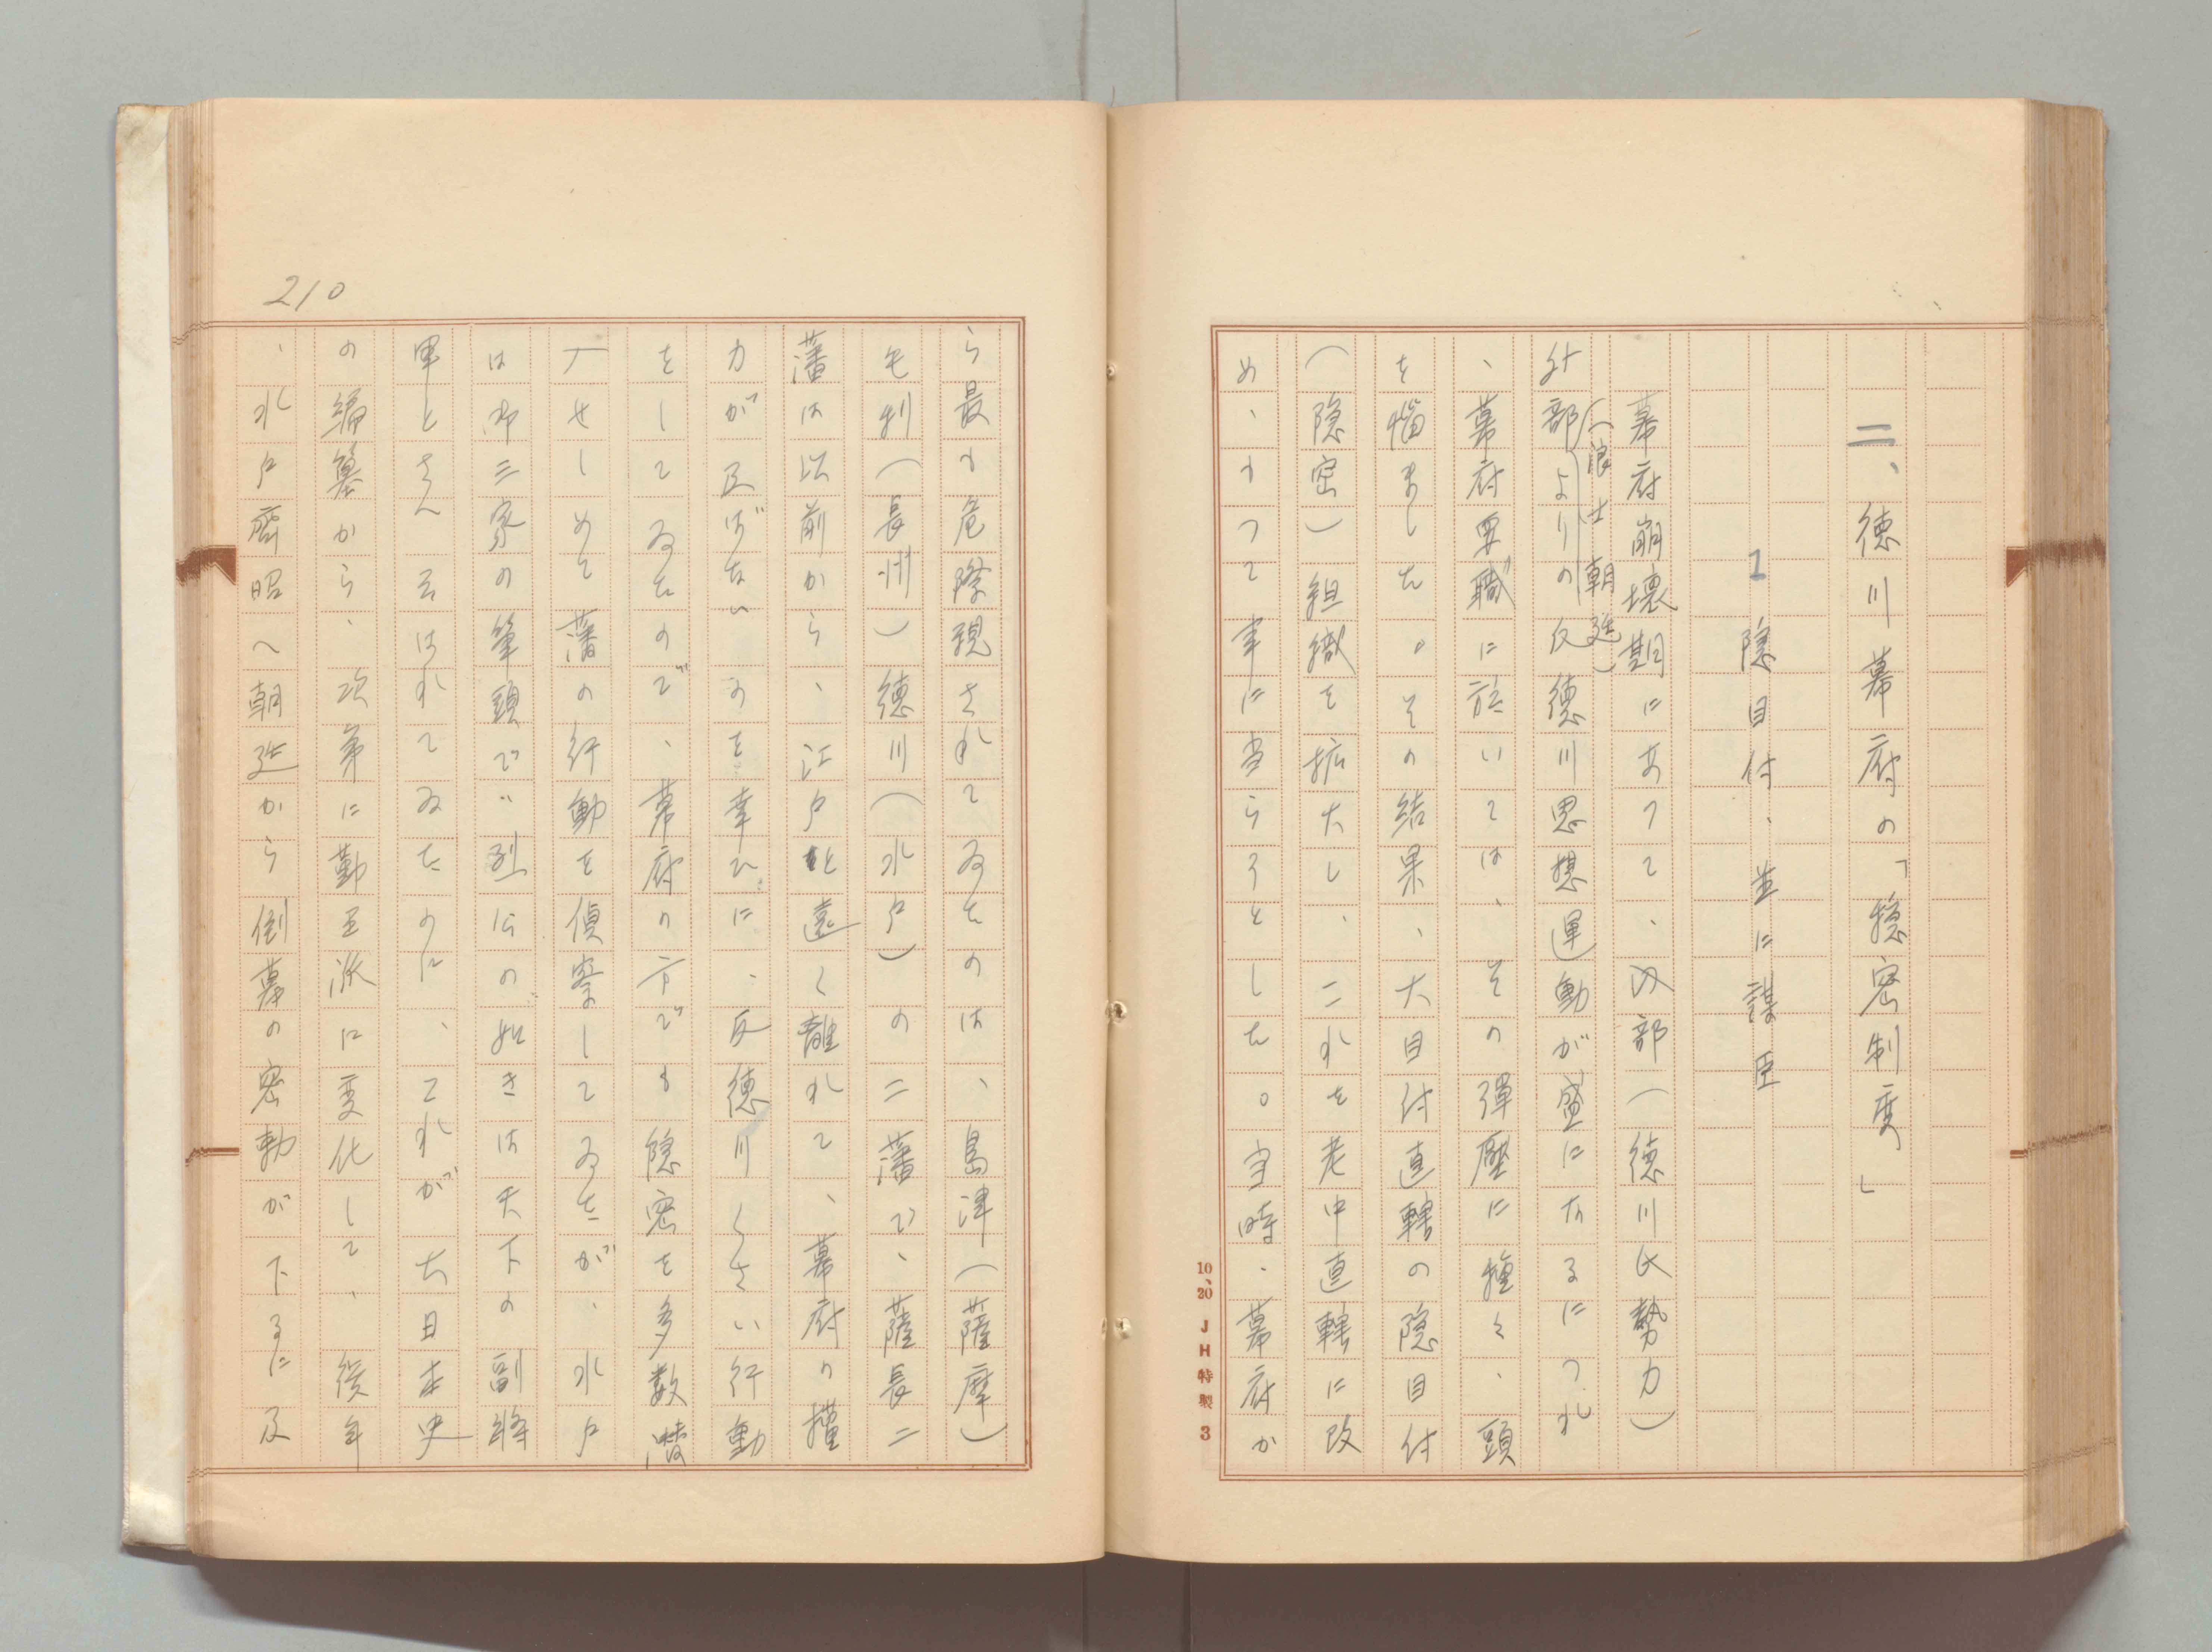 二、徳川幕府の「隠密制度」
1 隠目付、並に謀臣
幕府崩壊期にあつて、内部（徳川氏勢力）
外部（浪士朝廷）よりの反徳川思想運動が盛になるにつれ
、幕府要職に於いては、その弾壓に種々、頭
を悩ました。その結果、大目付直轄の隠目付
（隠密）組織を拡大し、これを老中直轄に改
め、もつて事に当らうとした。当時、幕府か
10、20 JH特製 3
210
ら最も危険視されてゐたのは、島津（薩摩）
毛利（長州）徳川（水戸）の二藩で、薩長二
藩は以前から、江戸を遠く離れて、幕府の権
力が及ばないのを幸ひに、反徳川くさい行動
をしてゐたので、幕府の方でも隠密を多数潜
入せしめて藩の行動を偵察してゐたが、水戸
は御三家の筆頭で〃烈公の〃如きは天下の副将
軍とさへ云はれてゐたのに、これが大日本史
の編纂から、次第に勤王派に変化して、後年
、水戸齊昭へ朝廷から倒幕の密勅が下るに及